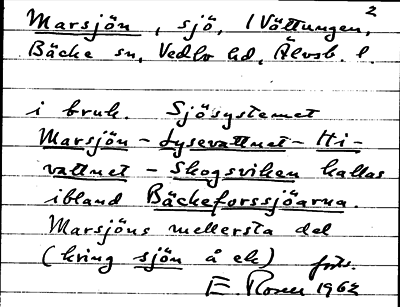 2
Marsjön, sjö, 1 Vättungen,
Bäcke sn, Vedbo hd, Älvsb. l.
i bruk. Sjösystemet
Marsjön - Lysevattnet - Hi-
vattnet - Skogsviken kallas
ibland Bäckeforssjöarna.
Marsjöns mellersta del
(kring sjön å ek)
E Rosen 1962